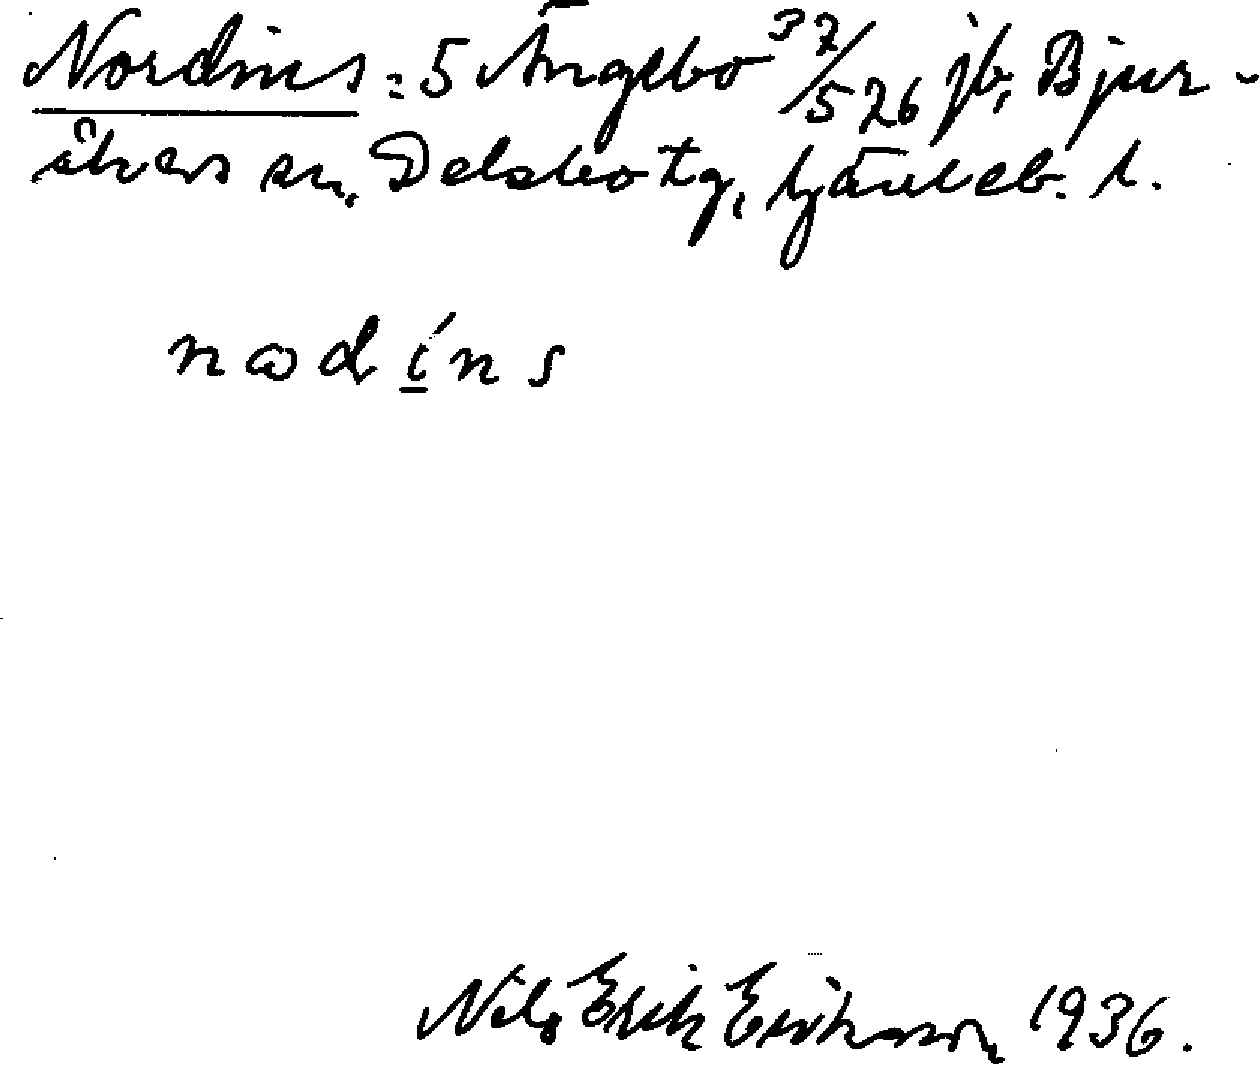 Nordins = 5 Ängebo 32/526 jb, Bjur-
åkers sn, Delsbo tg, Gävleb. l.
nωdíns
Nils Erik Eriksson 1936.